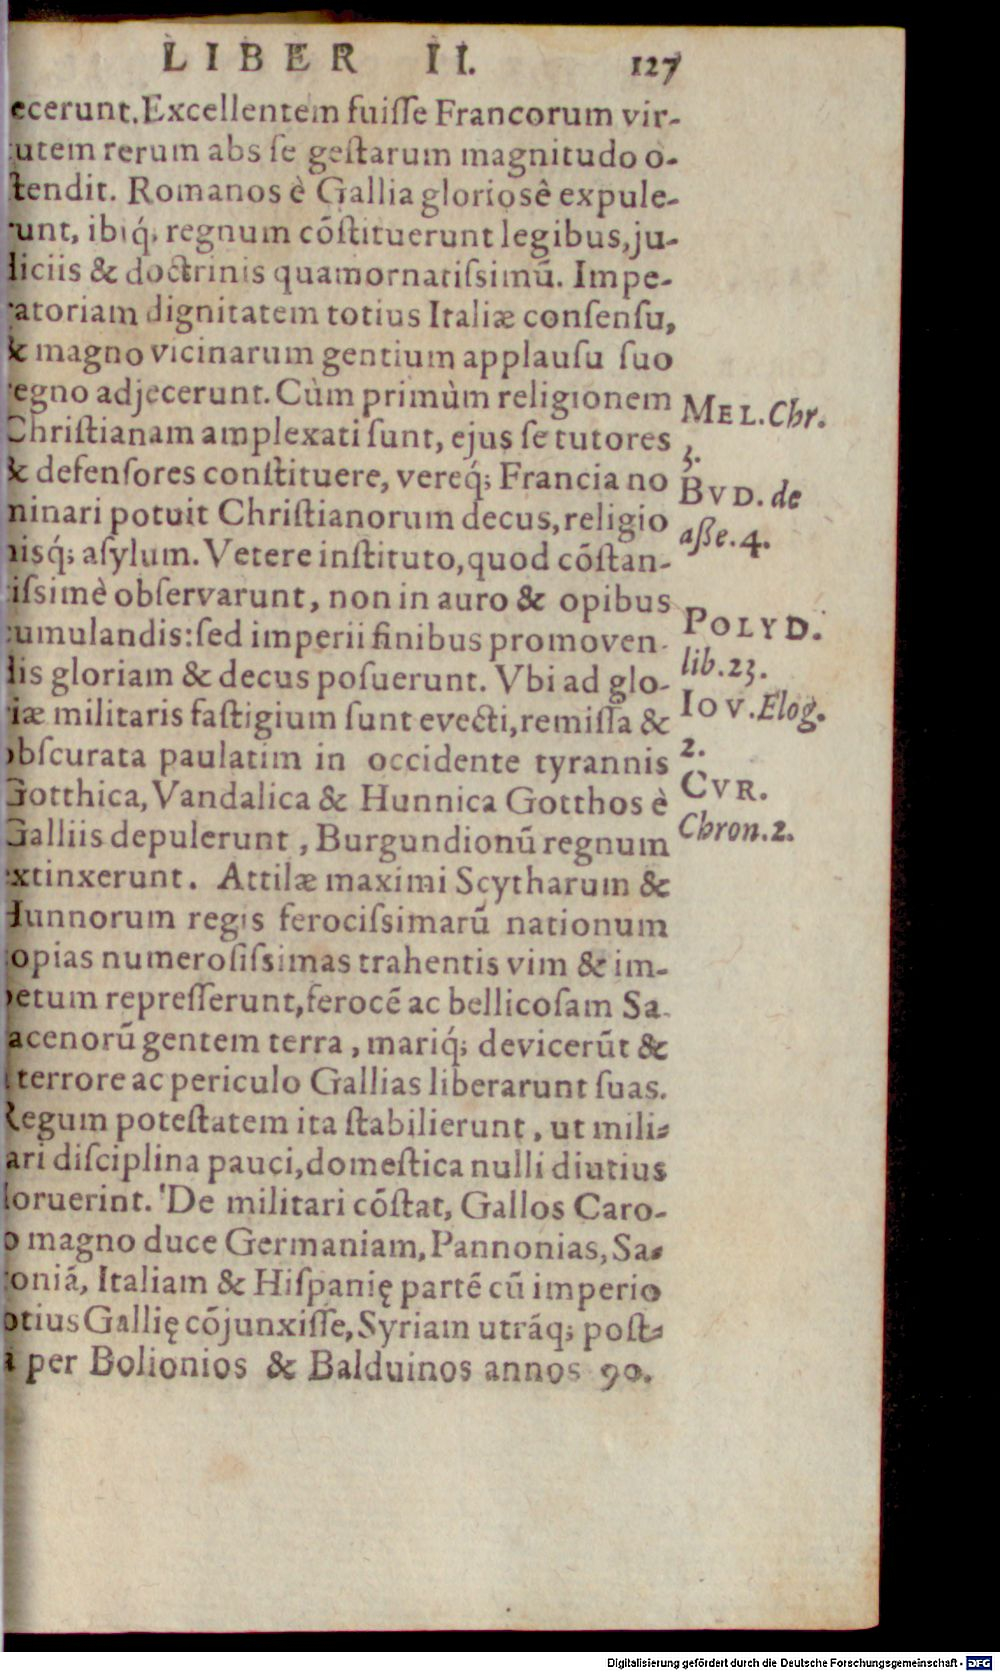 LIBER II. 127
ecerunt. Excellentem fuiſſe Francorum vir-
utem rerum abs ſe geſtarum magnitudo o-
ſtendit. Romanos è Gallia glorioſê expule-
runt, ibiq́; regnum cõſtituerunt legibus, ju-
diciis & doctrinis quamornatiſsimũ. Impe-
ratoriam dignitatem totius Italiæ conſenſu,
& magno vicinarum gentium applauſu ſuo
regno adjecerunt. Cùm primùm religionem
Chriſtianam amplexati ſunt, ejus ſe tutores
& defenſores conſtituere, vereq́; Francia no
minari potuit Chriſtianorum decus, religio
nisq́; aſylum. Vetere inſtituto, quod cõſtan-
iſsimè obſervarunt, non in auro & opibus
cumulandis: ſed imperii finibus promoven-
dis gloriam & decus poſuerunt. Vbi ad glo-
riæ militaris faſtigium ſunt evecti, remiſſa &
obſcurata paulatim in occidente tyrannis
Gotthica, Vandalica & Hunnica Gotthos è
Galliis depulerunt, Burgundionũ regnum
extinxerunt. Attilæ maximi Scytharum &
Hunnorum regis ferociſsimarũ nationum
copias numeroſiſsimas trahentis vim & im-
petum repreſſerunt, ferocẽ ac bellicoſam Sa-
racenorũ gentem terra, mariq́; devicerũt &
terrore ac periculo Gallias liberarunt ſuas.
Regum poteſtatem ita ſtabilierunt, ut mili-
tari diſciplina pauci, domeſtica nulli diutius
floruerint. 'De militari cõſtat, Gallos Caro-
lo magno duce Germaniam, Pannonias, Sa-
xoniã, Italiam & Hiſpanię partẽ cũ imperio
totius Gallię cõjunxiſſe, Syriam utrãq; poſt-
a per Bolionios & Balduinos annos 90.
MEL. Chr.
3.
BVD. de
aſſe. 4.
POLYD.
lib. 23.
IOV. Elog.
2.
CVR.
Chron. 2.
Digitalisierung gefördert durch die Deutsche Forschungsgemeinschaft - DFG